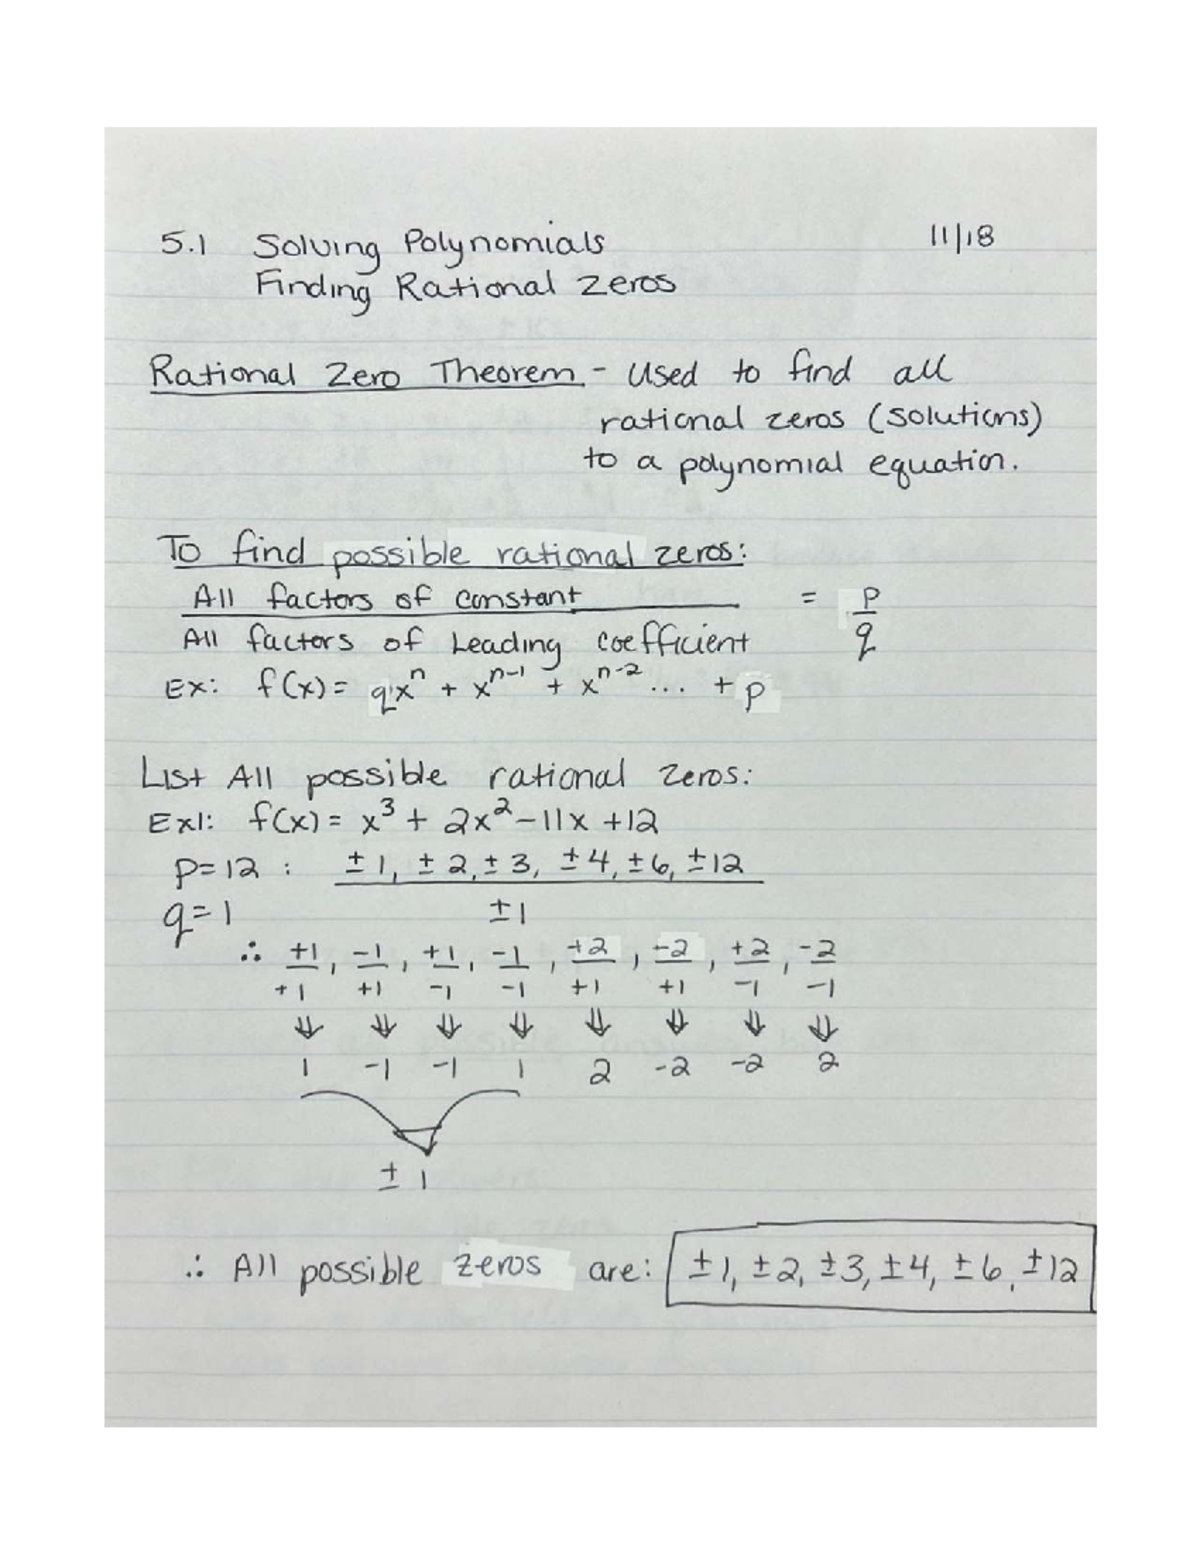 5.1 Solving Polynomials 11/18
Finding Rational Zeros
Rational Zero Theorem - Used to find all
rational zeros (solutions)
to a polynomial equation.
To find possible rational zeros:
All factors of constant = p
All factors of Leading coefficient q
Ex: f(x) = qx^n + x^n-1 + x^n-2 ... + p
List All possible rational zeros:
Ex1: f(x) = x³ + 2x² - 11x + 12
p = 12 : ±1, ±2, ±3, ±4, ±6, ±12
q = 1 ±1
∴ +1, -1, +1, -1, +2, -2, +2, -2
+1 +1 -1 -1 +1 +1 -1 -1
⇓ ⇓ ⇓ ⇓ ⇓ ⇓ ⇓ ⇓
1 -1 -1 1 2 -2 -2 2
± 1
∴ All possible zeros are: ±1, ±2, ±3, ±4, ±6, ±12